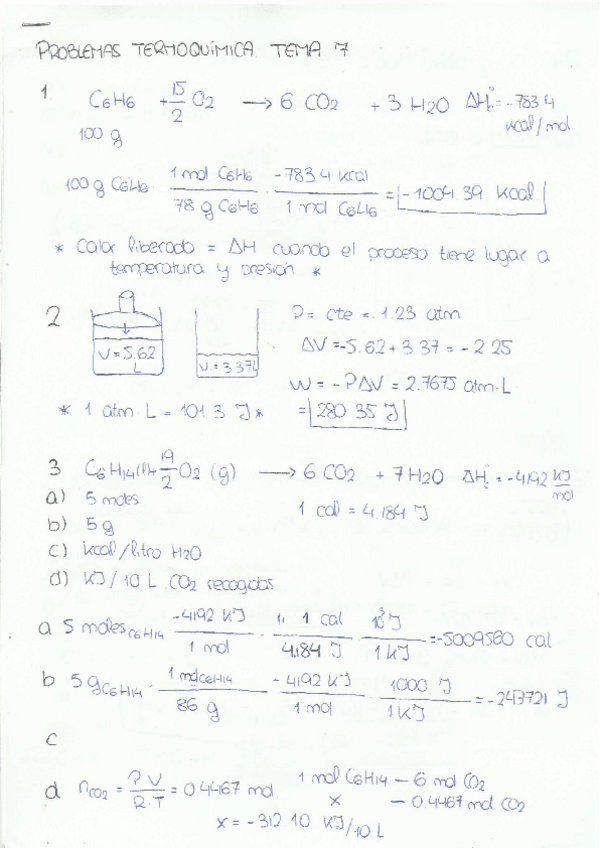 PROBLEMAS TERMOQUÍMICA TEMA 7
1 C6H6 + 15/2 O2 → 6 CO2 + 3 H2O ΔH°c = -783.4 kcal/mol
100 g
100 g C6H6 · 1 mol C6H6 / 78 g C6H6 · -783.4 kcal / 1 mol C6H6 = -1004.39 kcal
* Calor liberado = ΔH cuando el proceso tiene lugar a
temperatura y presión *
2 V = 5.62 L V = 3.37L P = cte = 1.23 atm
ΔV = -5.62 + 3.37 = -2.25
W = -PΔV = 2.7675 atm·L
* 1 atm L = 101.3 J * = 280.35 J
3 C6H14(l) + 19/2 O2 (g) → 6 CO2 + 7 H2O ΔH°c = -4192 KJ/mol
a) 5 moles 1 cal = 4.184 J
b) 5 g
c) kcal/litro H2O
d) KJ/10 L CO2 recogidos
a 5 moles C6H14 · -4192 KJ / 1 mol · 1 cal / 4.184 J · 10³ J / 1 KJ = -5009560 cal
b 5 g C6H14 · 1 mol C6H14 / 86 g · -4192 KJ / 1 mol · 1000 J / 1 KJ = -243721 J
c
d nCO2 = P·V / R·T = 0.4467 mol. 1 mol C6H14 — 6 mol CO2
x — 0.4467 mol CO2
x = -312.10 KJ/10L